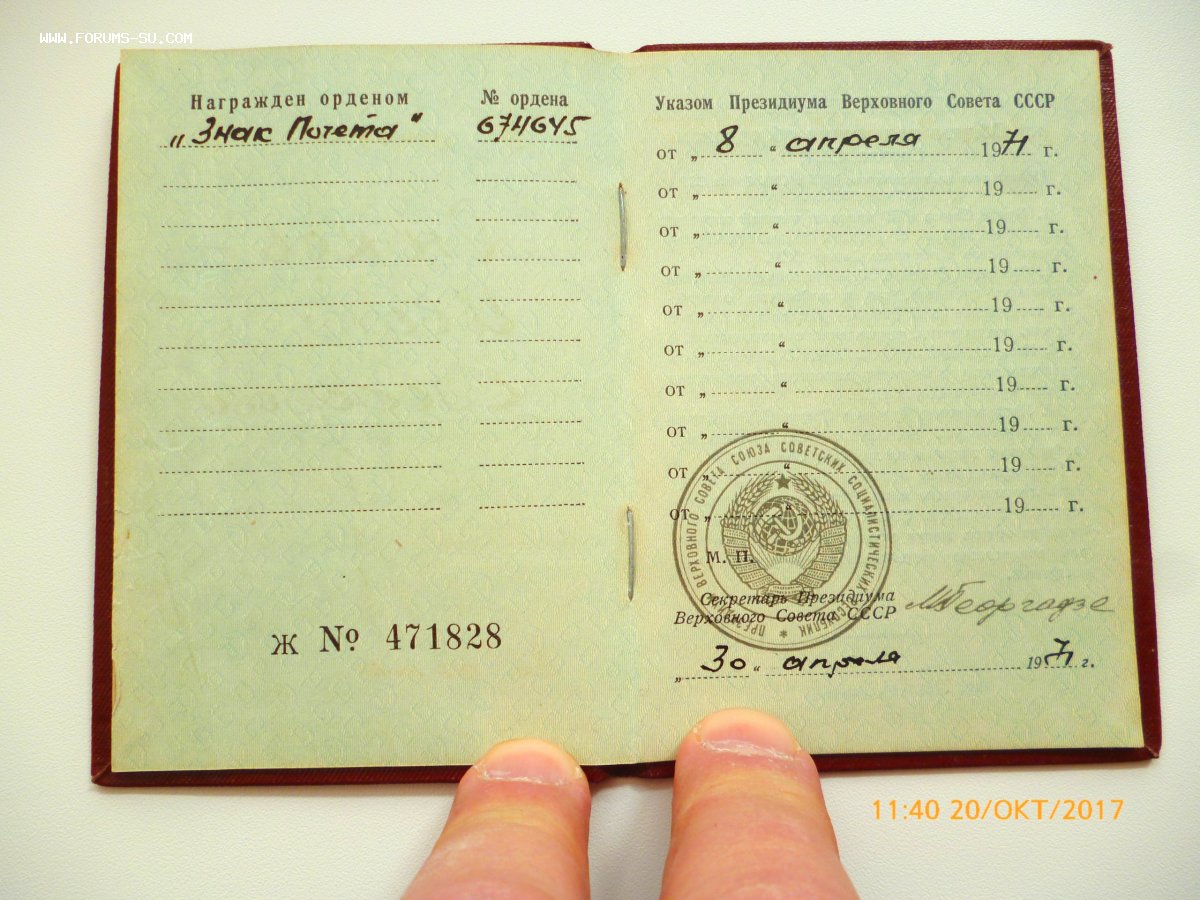 WWW.FORUMS-SU.COM
Награжден орденом
„Знак Почета“
№ ордена
674645
Ж № 471828
Указом Президиума Верховного Совета СССР
от „ 8 “ апреля 1971 г.
от „ “ 19 г.
от „ “ 19 г.
от „ “ 19 г.
от „ “ 19 г.
от „ “ 19 г.
от „ “ 19 г.
от „ “ 19 г.
от „ “ 19 г.
от „ “ 19 г.
ПРЕЗИДИУМ ВЕРХОВНОГО СОВЕТА СОЮЗА СОВЕТСКИХ СОЦИАЛИСТИЧЕСКИХ РЕСПУБЛИК *
М. П.
Секретарь Президиума
Верховного Совета СССР
МГеоргадзе
„ 30 “ апреля 1971 г.
11:40 20/ОКТ/2017